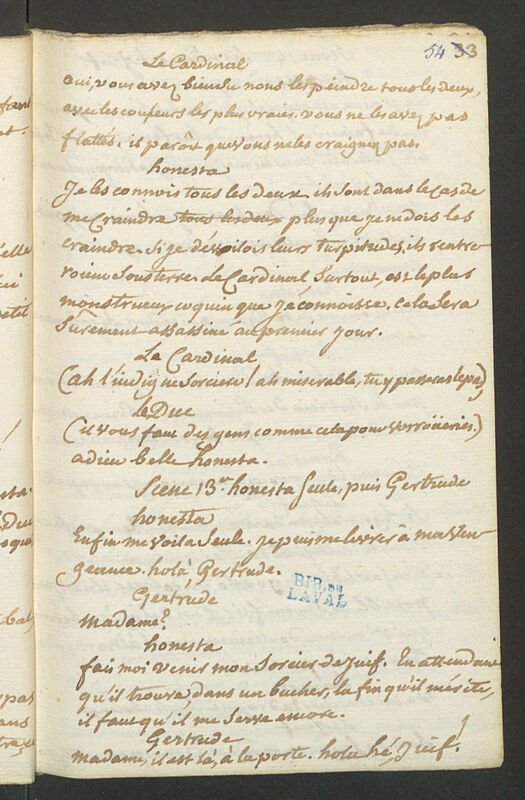 54 33
Le Cardinal
oui, vous avez bien su nous les peindre tous les deux,
avec les couleurs les plus vraies. vous ne les avez pas
flattés. il paroit que vous ne les craignez pas.
honesta
Je les connois tous les deux. ils sont dans le cas de
me craindre tous les deux plus que je ne dois les
craindre. si je dévoilois leurs turpitudes, ils rentre-
roient sous terre. Le Cardinal surtout, est le plus
monstrueux coquin que je connoisse. cela sera
surement assassiné au premier jour.
Le Cardinal
(ah l'indigne sorciere! ah miserable, tu y passeras le pas)
le Duc
(il vous faut des gens comme cela pour vos
adieu belle honesta.
Scene 13.e honesta seule, puis Gertrude
honesta
Enfin me voila seule. je puis me livrer à ma ven-
geance. holà, Gertrude.
BIB. DE
LAVAL
Gertrude
Madame?
honesta
fais moi venir mon sorcier de juif. En attendant
qu'il trouve, dans un bucher, la fin qu'il mérite,
il faut qu'il me serve encore.
Gertrude
madame, il est là, à la porte. hola hé, Juif!